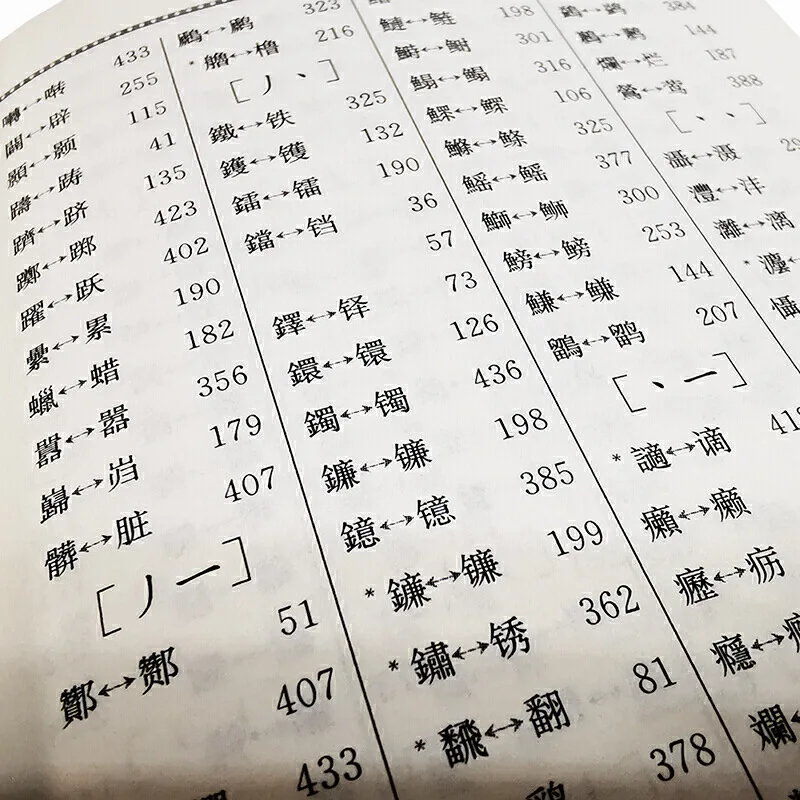 囀↔啭 433
闢↔辟 255
顥↔颢 115
躊↔踌 41
躋↔跻 135
躑↔踯 423
躍↔跃 402
纍↔累 190
蠟↔蜡 182
囂↔嚣 356
巋↔岿 179
髒↔脏 407
[丿一]
酇↔酂 51
407
433
323
216
[丿丶]
鐵↔铁 325
鑊↔镬 132
鐳↔镭 190
鐺↔铛 36
57
鐸↔铎 73
鐶↔镮 126
鐲↔镯 436
鐮↔镰 198
鐿↔镱 385
↔镰 199
*鏽↔锈 362
*飜↔翻 81
378
鰱↔鲢 198
鰣↔鲥 301
鰨↔鳎 316
鰥↔鳏 106
鰷↔鲦 325
鰩↔鳐 377
鰤↔𫚕 300
鰟↔鳑 253
鰜↔鳒 144
鶹↔鹠 207
[丶一]
*讁↔谪 418
癩↔癞
癧↔疬
癮↔
斕↔
384
鶼↔鹣 144
爛↔烂 187
鶯↔莺 388
[丶丶]
灄↔滠
灃↔沣
灕↔漓
懾